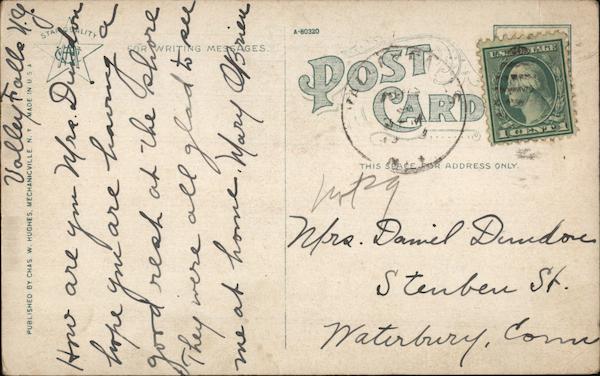 Valley Falls N.Y.
How are you Mrs. Dundon
hope you are having a
good rest at the Shore
They were all glad to see
me at home. Mary O'Brien
STAR QUALITY
FOR WRITING MESSAGES.
PUBLISHED BY CHAS. W. HUGHES, MECHANICVILLE, N.Y. MADE IN U.S.A.
A-80320
POST
CARD
THIS SPACE FOR ADDRESS ONLY.
U.S. POSTAGE
1 CENT 1
Mrs. Daniel Dundon
Steuben St.
Waterbury, Conn